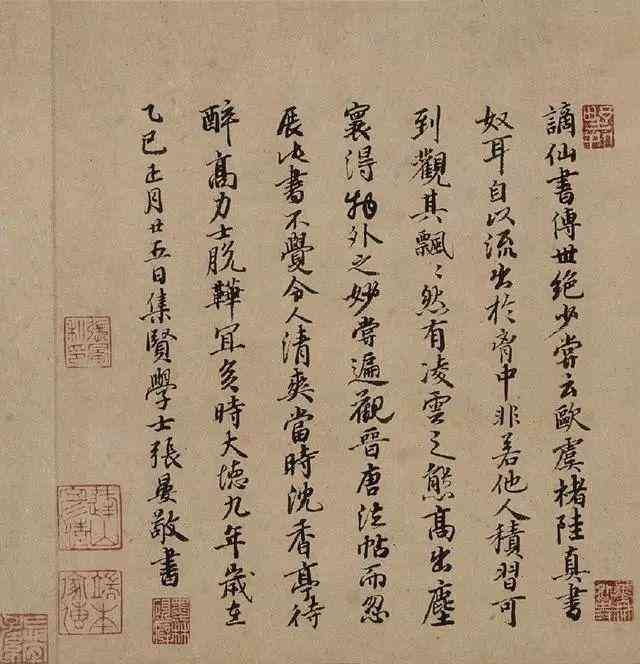 謫仙書傳世絶少嘗云歐虞褚陸真書
奴耳自以流出於胷中非若他人積習可
到觀其飄〻然有凌雲之態高出塵
寰得物外之妙嘗遍觀晉唐法帖而忽
展此書不覺令人清爽當時沈香亭待
醉高力士脫鞾冝矣時大徳九年歲在
乙巳正月廿五日集賢學士張晏敬書
端本家傳